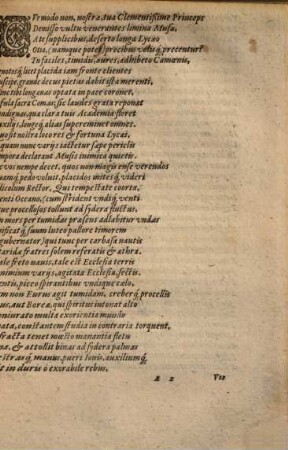 Fr modo non, nostra tua Clementissime Princeps
Demisso vultu venerantes limina Musæ.
A te supplicibus, deserto longa Lycæo
Otia, (namque potes) precibus votisq́ precentur?
Tu faciles, tumidis, aures, adhibeto Camœnis,
motisq́ luci placida iam fronte clientes
suscipe, grande decus pietas dabit ista merenti,
longanas optata in pace coronet,
sula sacra Comas; sic laudes gratu reponat
ndignas, qua clara tuis Academia floret
uxilijs, longeq́ alias supereminet omnes.
uo sit nostra locores et fortuna Lycæi,
quam nunc varijs iactetur sæpe periclis
mpora declarant Musis inimica quietis.
vos nempe decet, quos non magis ense verendos
uamq́ pedo voluit, placidos mites q́ videri
licolum Rector. Qui tempestate coorta,
enti Oceano, cum strident vndiq́ venti
que procellosos tollunt ad sydera fluctus,
n mors per tumidas præsens adlabitur vndas
nificatq́ suum luteo pallore timorem
gubernator, qui tunc per carbasa nautis
tarida fratres solem referatis &amp; æthra.
ale freto nauis, tale est Ecclesia terris
nimium varijs, agitata Ecclesia, sectis.
entis, piceo spirantibus vndique cœlo,
em non Eurus agit tumidam, crebrisq́ procellis
us, aut Boreæ, qui spiritus intonat alto
oniurato multa exorientia mundo
ata, constantem studia in contraria torquent,
fracta tenet mœsto manantia fletu
næ, &amp; attollit binas ad sydera palmas
manus, pueri Iouis, auxiliumq́,
it in duris ô exorabile rebus,
A 2 Vos